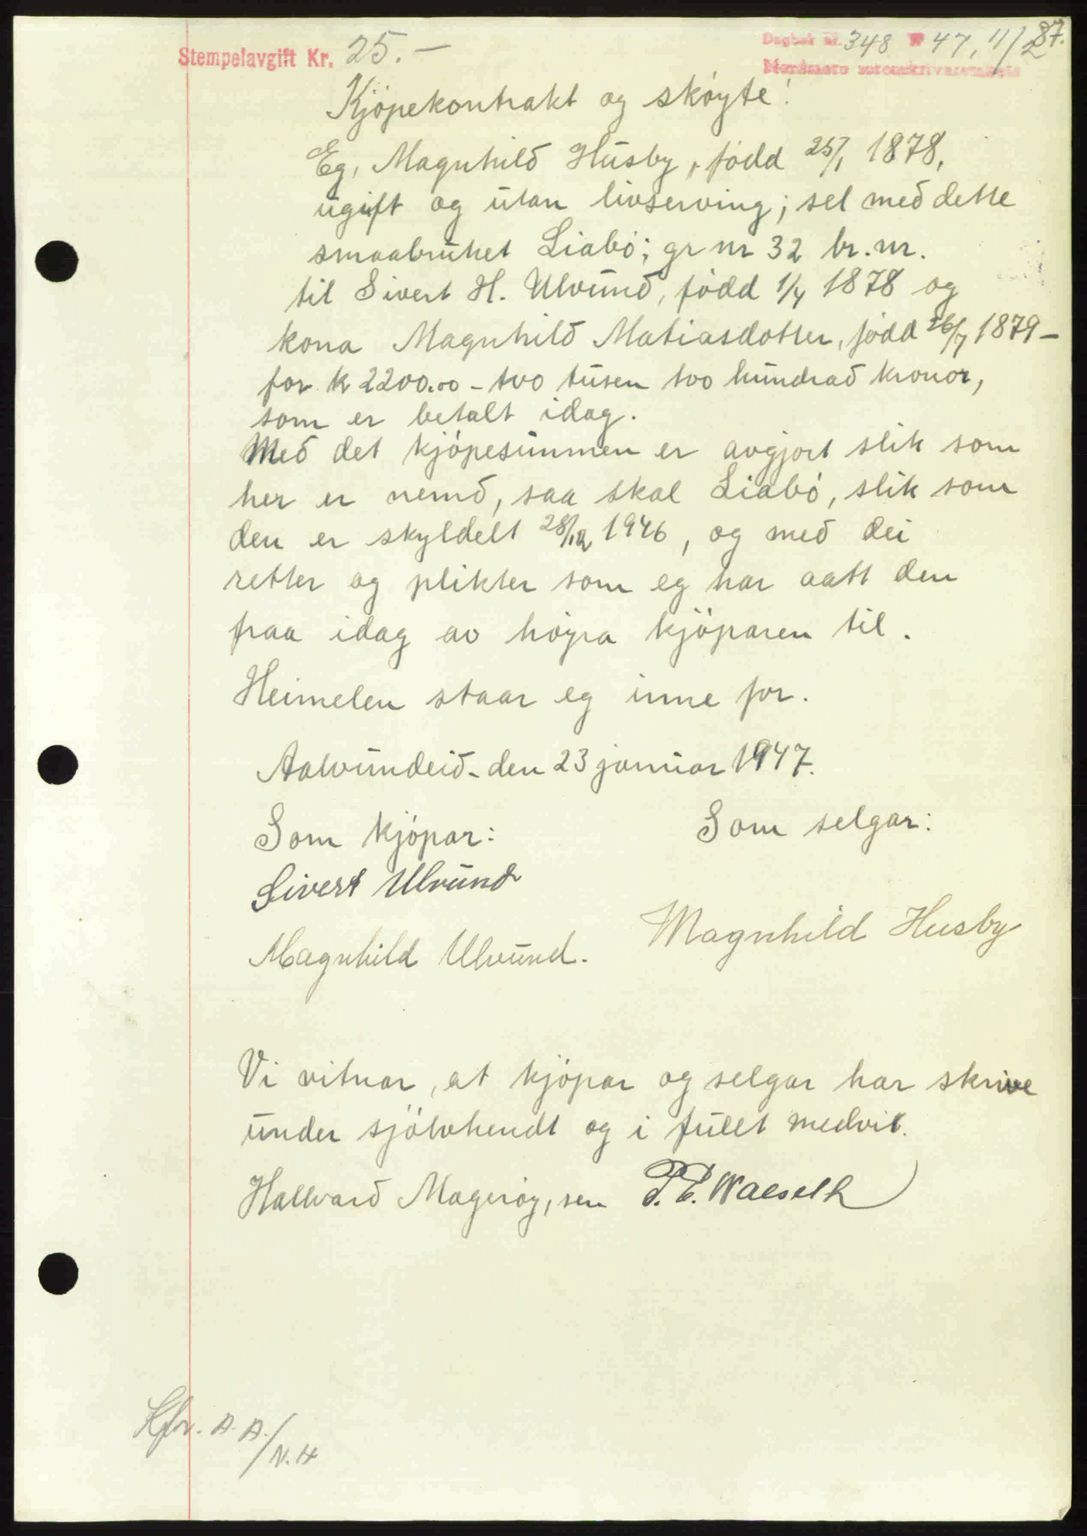 Stempelavgift Kr. 25.—
Dagbok nr. 348 19 47, 11/2
87.
Nordmøre sorenskriverembete
Kjöpekontrakt og sköyte!
Eg, Magnhild Husby, född 25/1 1878,
ugift og utan livserving; sel med dette
smaabruket Liabö; gr nr 32 br. nr.
til Sivert H. Ulvund, född 1/4 1878 og
kona Magnhild Matiasdotter, född 26/7 1879 –
for kr 2200.00 – tvo tusen tvo hundrad kronor,
som er betalt idag.
Med det kjöpesummen er avgjort slik som
her er nemd, saa skal Liabö, slik som
den er skyldelt 28/12 1946, og med dei
retter og plikter som eg har aatt den
fraa idag av höyra kjöparen til.
Heimelen staar eg inne for.
Aalvundeid – den 23 januar 1947.
Som kjöpar:
Som selgar:
Sivert Ulvund
Magnhild Ulvund.
Magnhild Husby
Vi vitnar, at kjöpar og selgar har skrive
under sjölvhendt og i fullt medvit.
Hallvard Mageröy, sen
Kfr. A.A./N.H